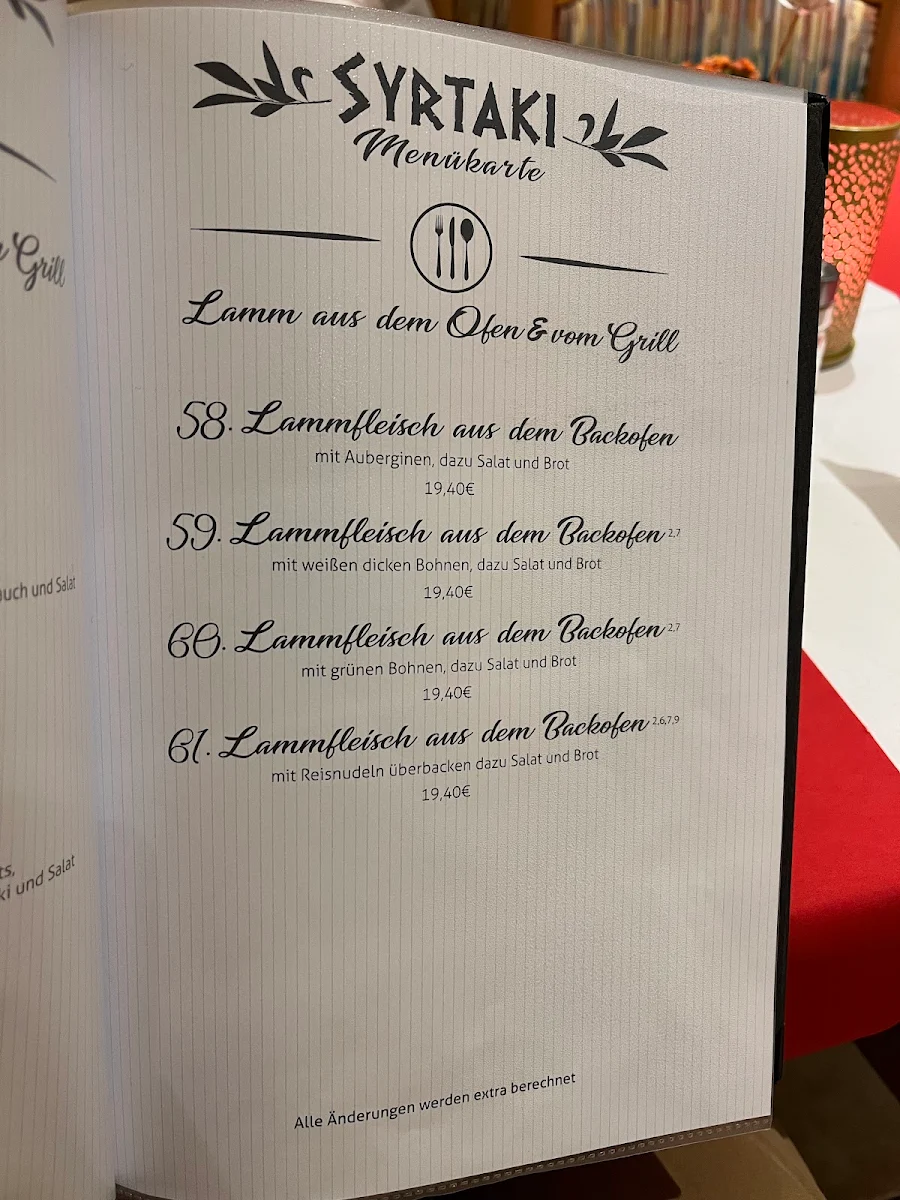 SYRTAKI
Menükarte
Grill
Lamm aus dem Ofen & vom Grill
58. Lammfleisch aus dem Backofen
mit Auberginen, dazu Salat und Brot
19,40€
59. Lammfleisch aus dem Backofen 2,7
mit weißen dicken Bohnen, dazu Salat und Brot
19,40€
auch und Salat
60. Lammfleisch aus dem Backofen 2,7
mit grünen Bohnen, dazu Salat und Brot
19,40€
61. Lammfleisch aus dem Backofen 2,6,7,9
mit Reisnudeln überbacken dazu Salat und Brot
19,40€
ts,
ki und Salat
Alle Änderungen werden extra berechnet